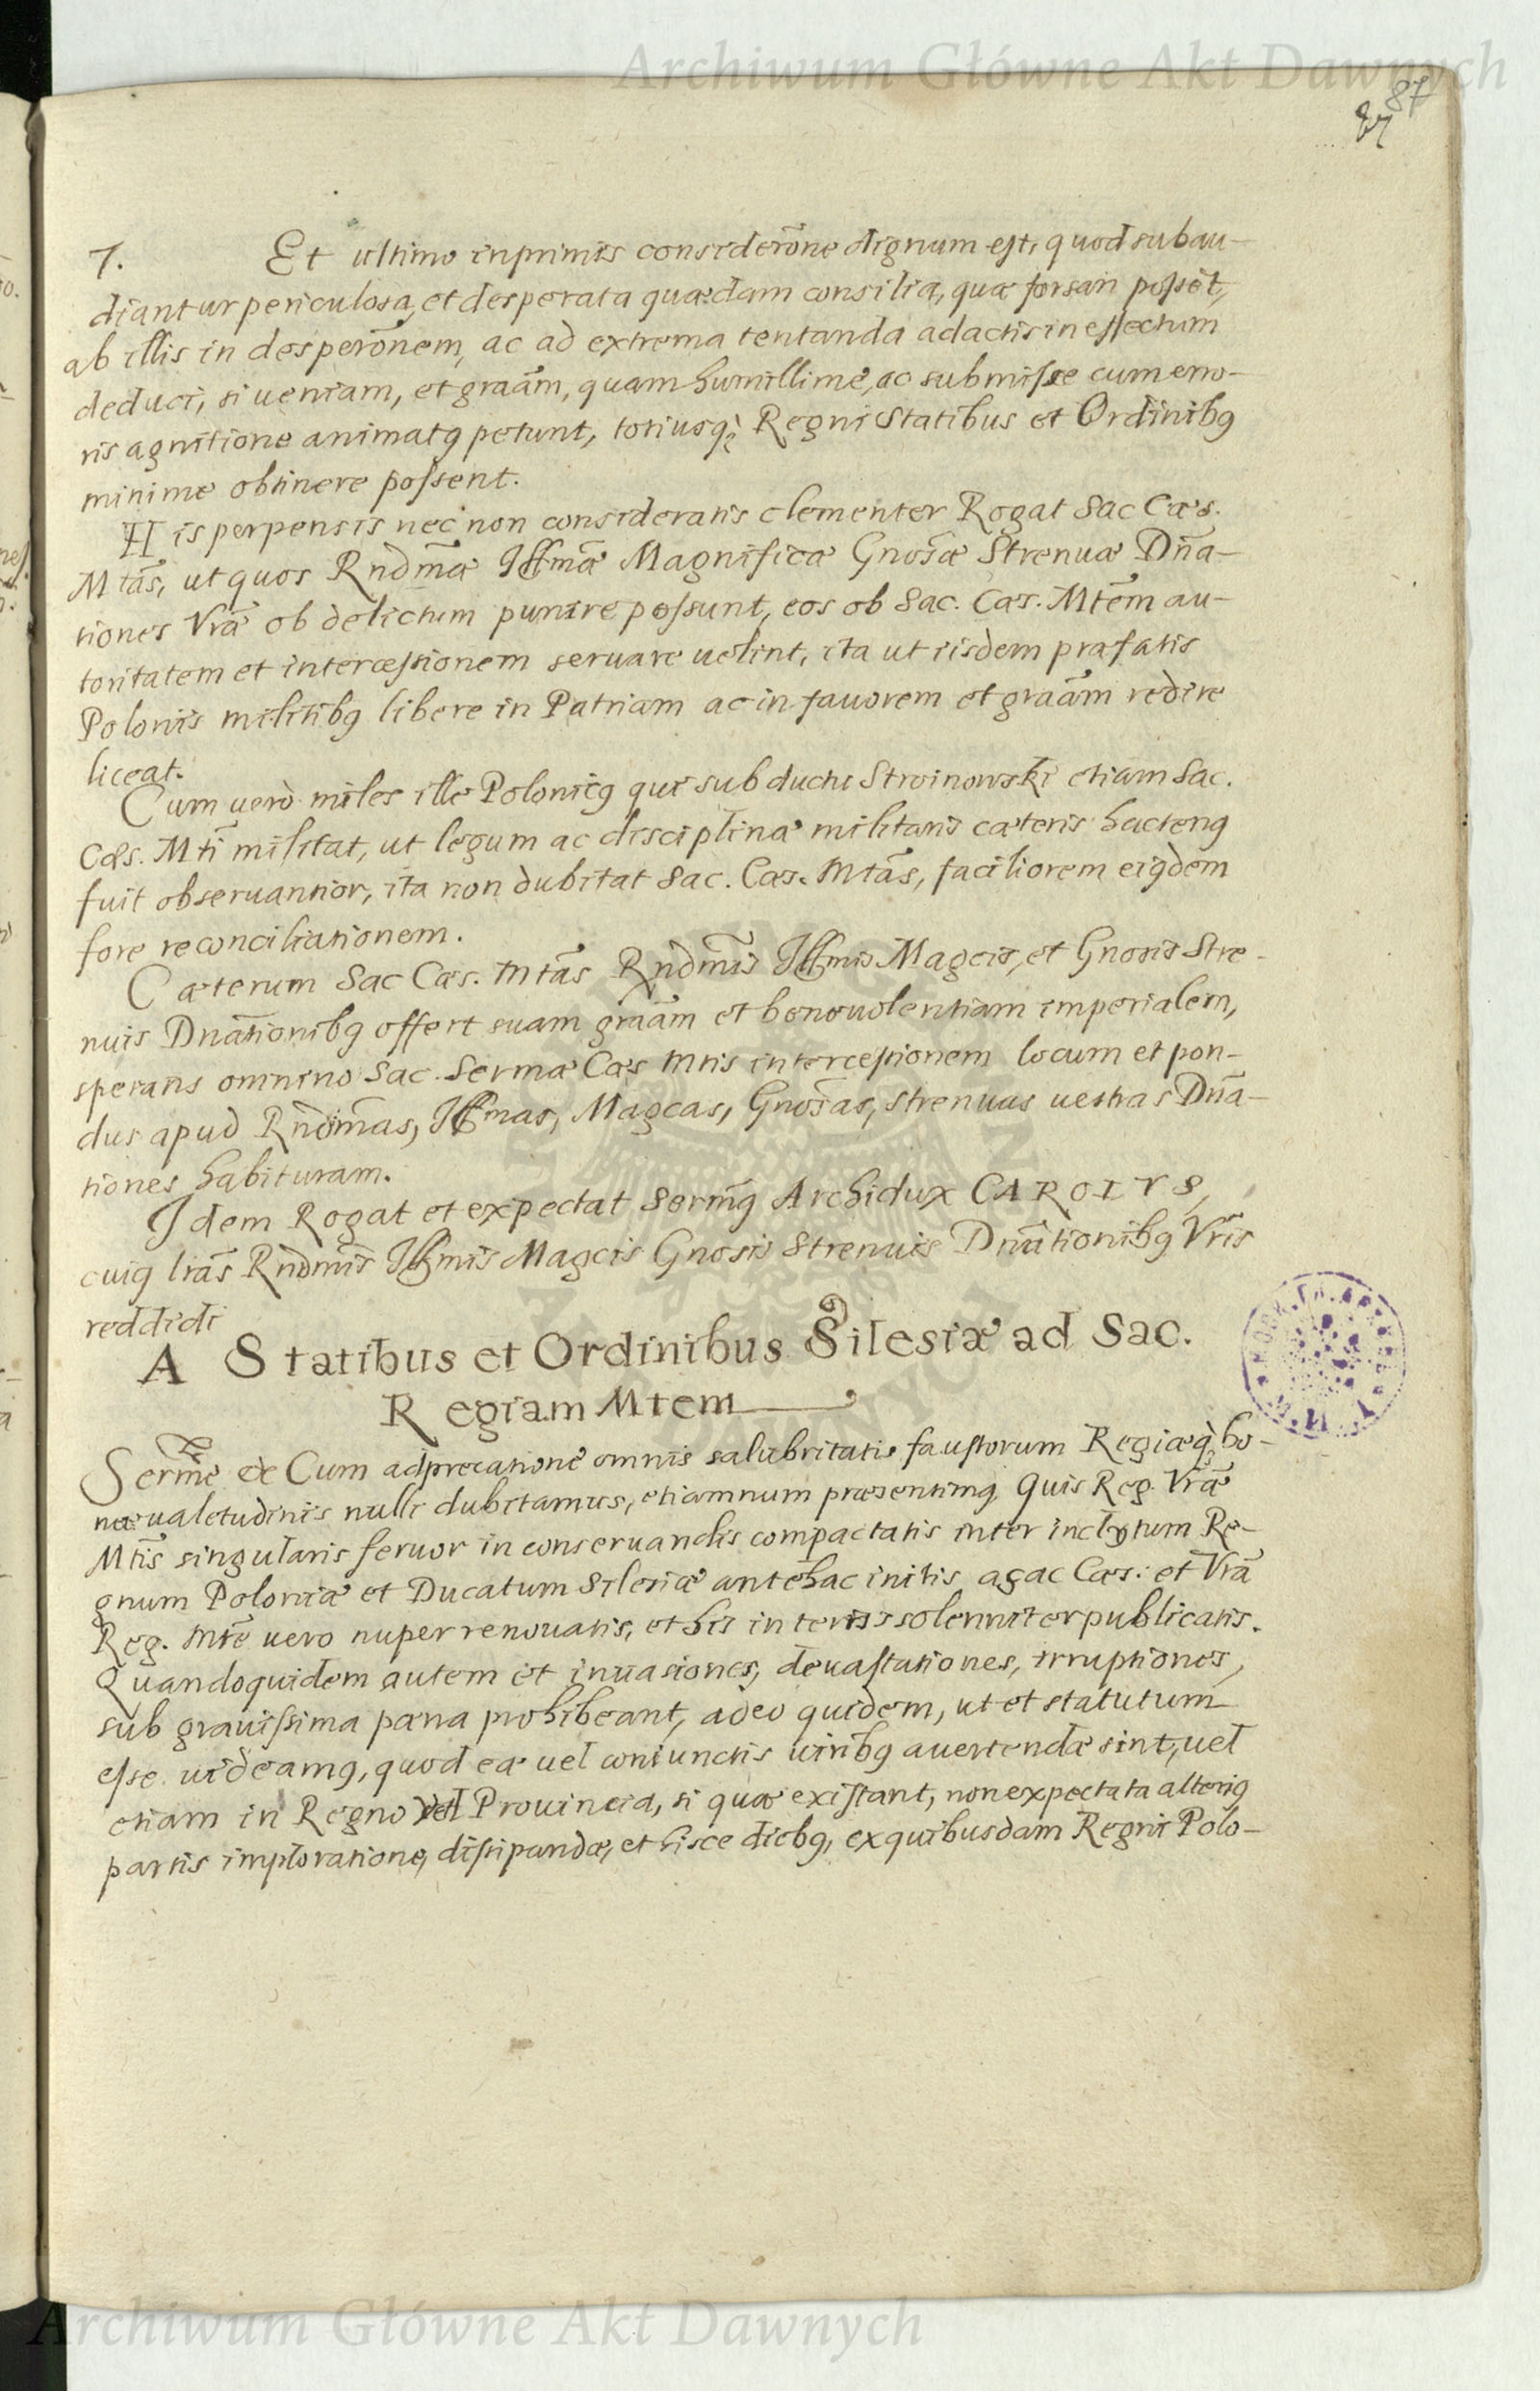 Archiwum Główne Akt Dawnych
87
87
7. Et ultimo inprimis considerõne dignum est, quod subau-
diantur periculosa, et desperata quædam consilia, quæ forsan possẽt,
ab illis in desperõnem, ac ad extrema tentanda adactis in effectum
deduci, si ueniam, et graãm, quam humillime, ac submisse cum erro-
ris agnitione animatq petunt, totiusq; Regni Statibus et Ordinibq
minime obtinere possent.
His perpensis nec non consideratis clementer Rogat Sac Cæs.
Mtãs, ut quos Rndmæ̃ Illmæ̃ Magnificæ Gnosæ̃ Strenuæ Dña-
tiones Vræ̃ ob delictum punire possunt, eos ob Sac. Cæs. Mtẽm au-
toritatem et intercessionem seruare uelint, ita ut iisdem præfatis
Polonis militibq libere in Patriam ac in fauorem et graãm redire
liceat.
Cum uerò miles ille Polonicq qui sub ductu Stroinowski etiam Sac.
Cæs. Mtĩ militat, ut legum ac disciplinæ militaris cæteris hactenq
fuit obseruantior, ita non dubitat Sac. Cæs. Mtãs, faciliorem eiqdem
fore reconciliationem.
Cæterum Sac Cæs. Mtãs Rndmĩs Illmis Magcis, et Gnosis Stre-
nuis Dnãtionibq offert suam graãm et beneuolentiam imperialem,
sperans omnino Sac. Sermæ Cæs Mtis intercessionem locum et pon-
dus apud Rndmãs, Illmas, Magcas, Gnosãs, strenuas uestras Dña-
tiones habituram.
Idem Rogat et expectat Sermq̃ Archidux CAROLVS,
cuiq lrãs Rndmĩs Illmis Magcis Gnosis Strenuis Dnãtionibq Vrĩs
reddidi
A Statibus et Ordinibus Silesiæ ad Sac.
Regiam Mtem
Sermẽ &c Cum adprecatione omnis salubritatis faustorum Regiæq; bo-
næ ualetudinis nulli dubitamus, etiamnum præsentimq Quis Reg. Vræ̃
Mtĩs singularis feruor in conseruandis compactatis inter inclytum Re-
gnum Poloniæ et Ducatum Silesiæ antehac initis, a Cæs: et Vrã
Reg. Mtẽ uero nuper renouatis, et his in terris solenniter publicatis.
Quandoquidem autem et inuasiones, deuastationes, irruptiones,
sub grauissima pæna prohibeant, adeo quidem, ut et statutum
esse uideamq, quod eæ uel coniunctis uiribq auertendæ sint, uel
etiam in Regno vel Prouincia, si quæ existant, non expectata alteriq
partis imploratione, dissipandæ, et hisce diebq, ex quibusdam Regni Polo-
Archiwum Główne Akt Dawnych